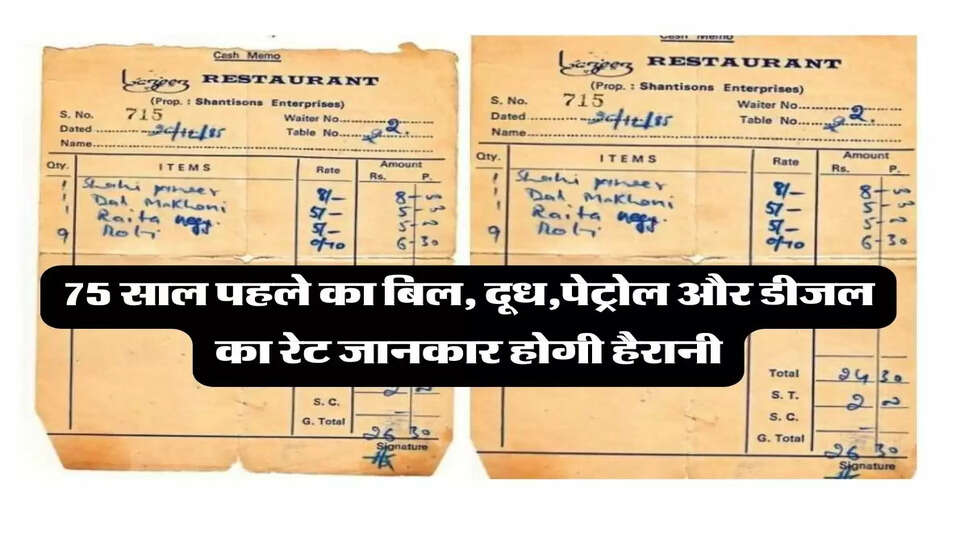 Cash Memo
Lazeez RESTAURANT
(Prop. : Shantisons Enterprises)
S. No. 715 Waiter No.
Dated 20/12/85 Table No. 2.
Name
Qty. ITEMS Rate Amount
Rs. P.
1 Shahi paneer 8/- 8-00
1 Dal Makhani 5/- 5-00
1 Raita 5/- 5-00
9 Roti 0/70 6-30
S. C.
G. Total 26 30
Signature
Cash Memo
Lazeez RESTAURANT
(Prop. : Shantisons Enterprises)
S. No. 715 Waiter No.
Dated 20/12/85 Table No. 2.
Name
Qty. ITEMS Rate Amount
Rs. P.
1 Shahi paneer 8/- 8-00
1 Dal Makhani 5/- 5-00
1 Raita 5/- 5-00
9 Roti 0/70 6-30
Total 24 30
S. T. 2
S. C.
G. Total 26 30
Signature
75 साल पहले का बिल, दूध,पेट्रोल और डीजल
का रेट जानकार होगी हैरानी